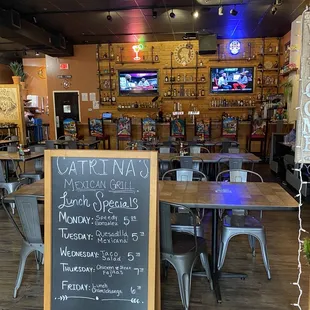 CATRINA'S
MEXICAN GRILL
Lunch Specials
MONDAY: Speedy Gonzales 5
TUESDAY: Quesadilla Mexicana 5
WEDNESDAY: Taco Salad 5
THURSDAY: Chicken & Steak Fajitas 7
FRIDAY: Lunch Chimichanga 6